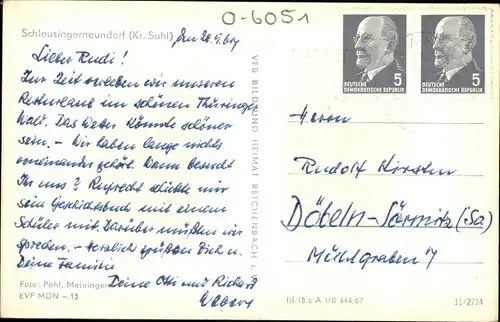 O-6051
Schleusingerneundorf (Kr. Suhl)
Den 26.9.67
Lieber Rudi!
Zur Zeit erleben wir unseren
Resturlaub im schönen Thüringer
Wald. Das Wetter könnte schöner
sein. – Wir haben lange nichts
voneinander gehört. Wann besucht
Ihr uns? Ruprecht schickte mir
sein Geschichtsbuch mit einem
Schüler mit. Darüber müßten wir
sprechen. – Herzlich grüßen Dich u.
Deine Familie
Deine Otti und Richard
Webers
Foto: Pohl, Meiningen
EVP MDN –.15
VEB BILD UND HEIMAT REICHENBACH i.
5
DEUTSCHE
DEMOKRATISCHE REPUBLIK
5
DEUTSCHE
DEMOKRATISCHE REPUBLIK
Herrn
Rudolf
Döbeln-Sörmitz (Sa)
Mühlgraben 7
III/18/6 A 1/B 444/67
11/2714